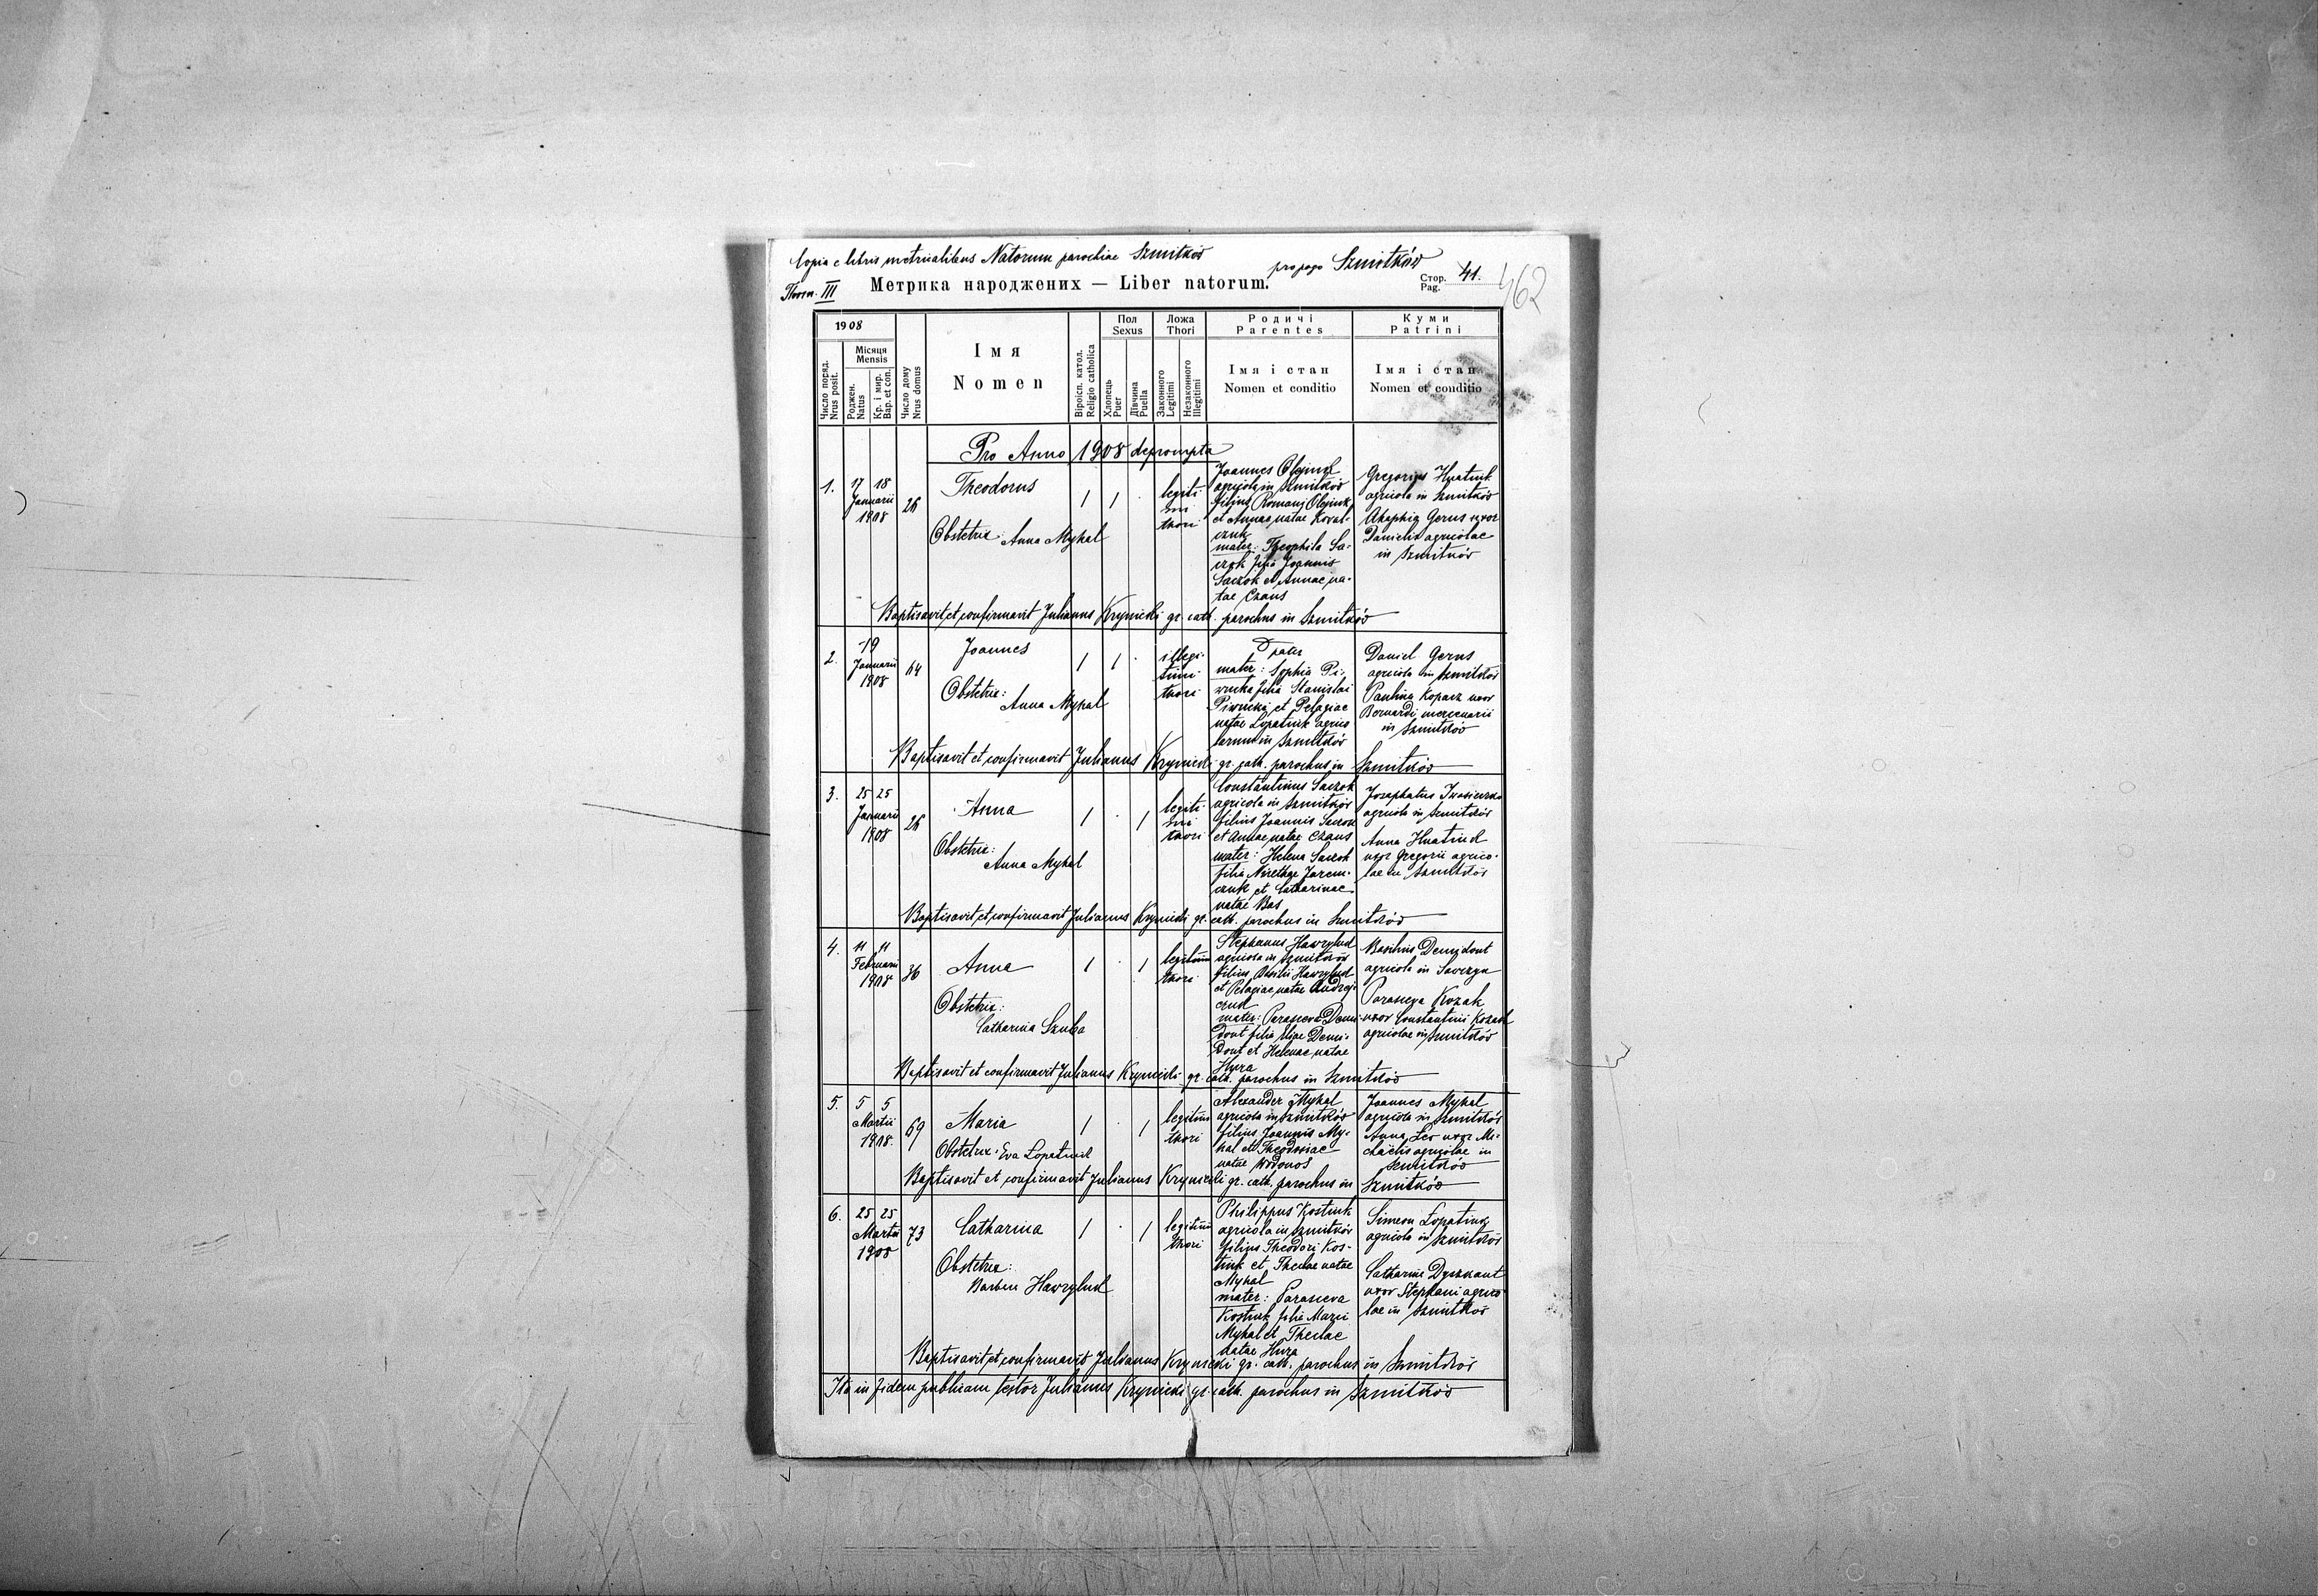 Copia e libris metricalibus Natorum parochiae Szmitków
pro pago Szmitków
Tom. III
Метрика народжених — Liber natorum.
Стор. Pag. 41.
462
1908
Число поряд. Nrus posit.
Місяця Mensis
Роджен. Natus
Кр. і мир. Bap. et con.
Число дому Nrus domus
Імя
Nomen
Віроісп. катол. Religio catholica
Пол Sexus
Хлопець Puer
Дівчина Puella
Ложа Thori
Законного Legitimi
Незаконного Illegitimi
Родичі Parentes
Імя і стан
Nomen et conditio
Куми Patrini
Імя і стан
Nomen et conditio
Pro Anno 1908 deprompta
1.
17 18
Januarii
1908
26
Theodorus
Obstetrix Anna Mykal
1 1 ·
legiti-
mi
thori
Joannes Olejnik
agricola in Szmitków
filius Romani Olejnik
et Annae natae Kowal-
czuk
mater: Theophila Sa-
czok filia Joannis
Saczok et Annae na-
tae Czaus
Gregorius Hnatiuk
agricola in Szmitków
Akaphia Gerus uxor
Danielis agricolae
in Szmitków
Baptisavit et confirmavit Julianus Krynicki gr. cath. parochus in Szmitków
2.
19
Januarii
1908
64
Joannes
Obstetrix:
Anna Mykal
1 1 ·
illegi-
timi
thori
pater
mater: Sophia Pi-
wnicka filia Stanislai
Piwnicki et Pelagiae
natae Lopatiuk agrico
larum in Szmitków
Daniel Gerus
agricola in Szmitków
Paulina Kopacz uxor
Bernardi mercenarii
in Szmitków
Baptisavit et confirmavit Julianus Krynicki gr. cath. parochus in Szmitków
3.
25 25
Januarii
1908
26
Anna
Obstetrix:
Anna Mykal
1 · 1
legiti-
mi
thori
Constantinus Saczok
agricola in Szmitków
filius Joannis Saczok
et Annae natae Czaus
mater: Helena Saczok
filia Jarem-
czuk et Catharinae
natae Bas
Josaphatus
agricola in Szmitków
Anna Hnatiuk
uxor Gregorii agrico-
lae in Szmitków
Baptisavit et confirmavit Julianus Krynicki gr. cath. parochus in Szmitków
4.
11 11
Februarii
1908
36
Anna
Obstetrix:
Catharina Szuba
1 · 1
legitimi
thori
Stephanus Hawryluk
agricola in Szmitków
filius Basilii Hawryluk
et Pelagiae natae Andrej-
czuk
mater: Parasceva Demi-
dont filia Eliae Demi-
dont et Helenae natae
Hura
Basilius Demidont
agricola in Sawczyn
Parasceva Kozak
uxor Constantini Kozak
agricolae in Szmitków
Baptisavit et confirmavit Julianus Krynicki gr. cath. parochus in Szmitków
5.
5 5
Martii
1908.
69
Maria
Obstetrix: Eva Lopatiuk
1 · 1
legitimi
thori
Alexander Mykal
agricola in Szmitków
filius Joannis My-
kal et Theodosiae
natae Wdonos
Joannes Mykal
agricola in Szmitków
Anna Les uxor Mi-
chaelis agricolae in
Szmitków
Baptisavit et confirmavit Julianus Krynicki gr. cath. parochus in Szmitków
6.
25 25
Martii
1908
73
Catharina
Obstetrix:
Barbara Hawryluk
1 · 1
legitimi
thori
Philippus Kostiuk
agricola in Szmitków
filius Theodori Kos-
tiuk et Theclae natae
Mykal
mater: Parasceva
Kostiuk filia Marii
Mykal et Theclae
natae Hura
Simeon Lopatiuk
agricola in Szmitków
Catharina Dyszkant
uxor Stephani agrico
lae in Szmitków
Baptisavit et confirmavit Julianus Krynicki gr. cath. parochus in Szmitków
Ita in fidem publicam testor Julianus Krynicki gr. cath. parochus in Szmitków